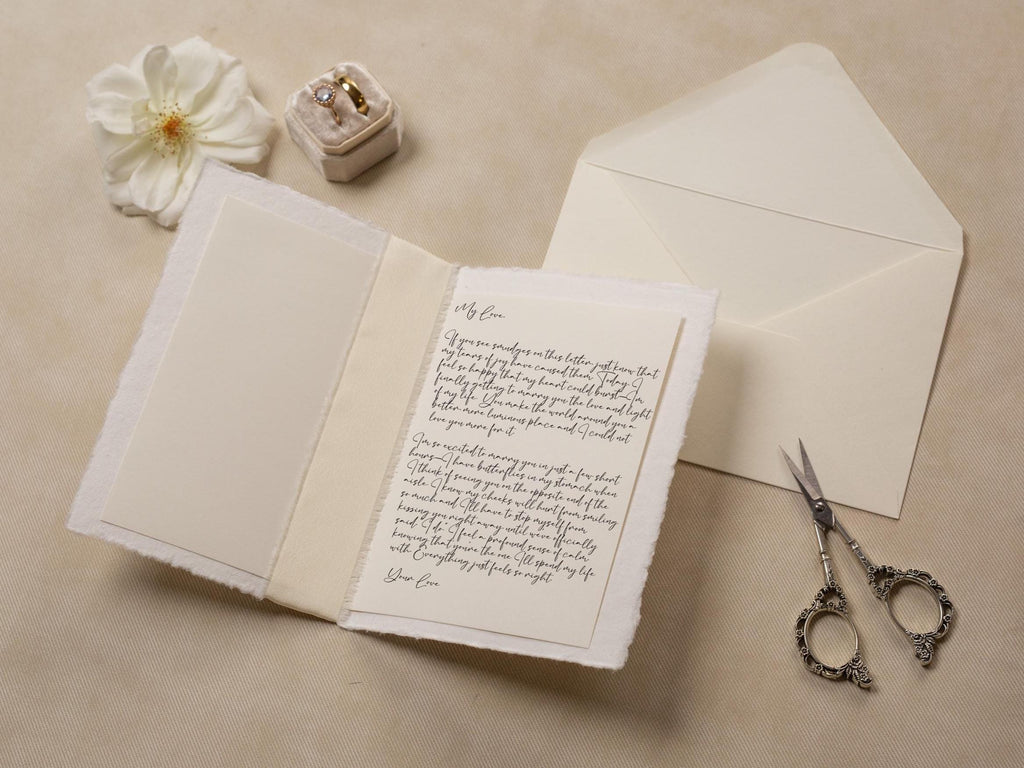 My Love,
If you see smudges on this letter, just know that
my tears of joy have caused them. Today I
feel so happy that my heart could burst—I'm
finally getting to marry you, the love and light
of my life. You make the world around you a
better, more luminous place and I could not
love you more for it.
I'm so excited to marry you in just a few short
hours—I have butterflies in my stomach when
I think of seeing you on the opposite end of the
aisle. I know my cheeks will hurt from smiling
so much and I'll have to stop myself from
kissing you right away until we've officially
said "I do." I feel a profound sense of calm
knowing that you're the one I'll spend my life
with. Everything just feels so right.
Your Love